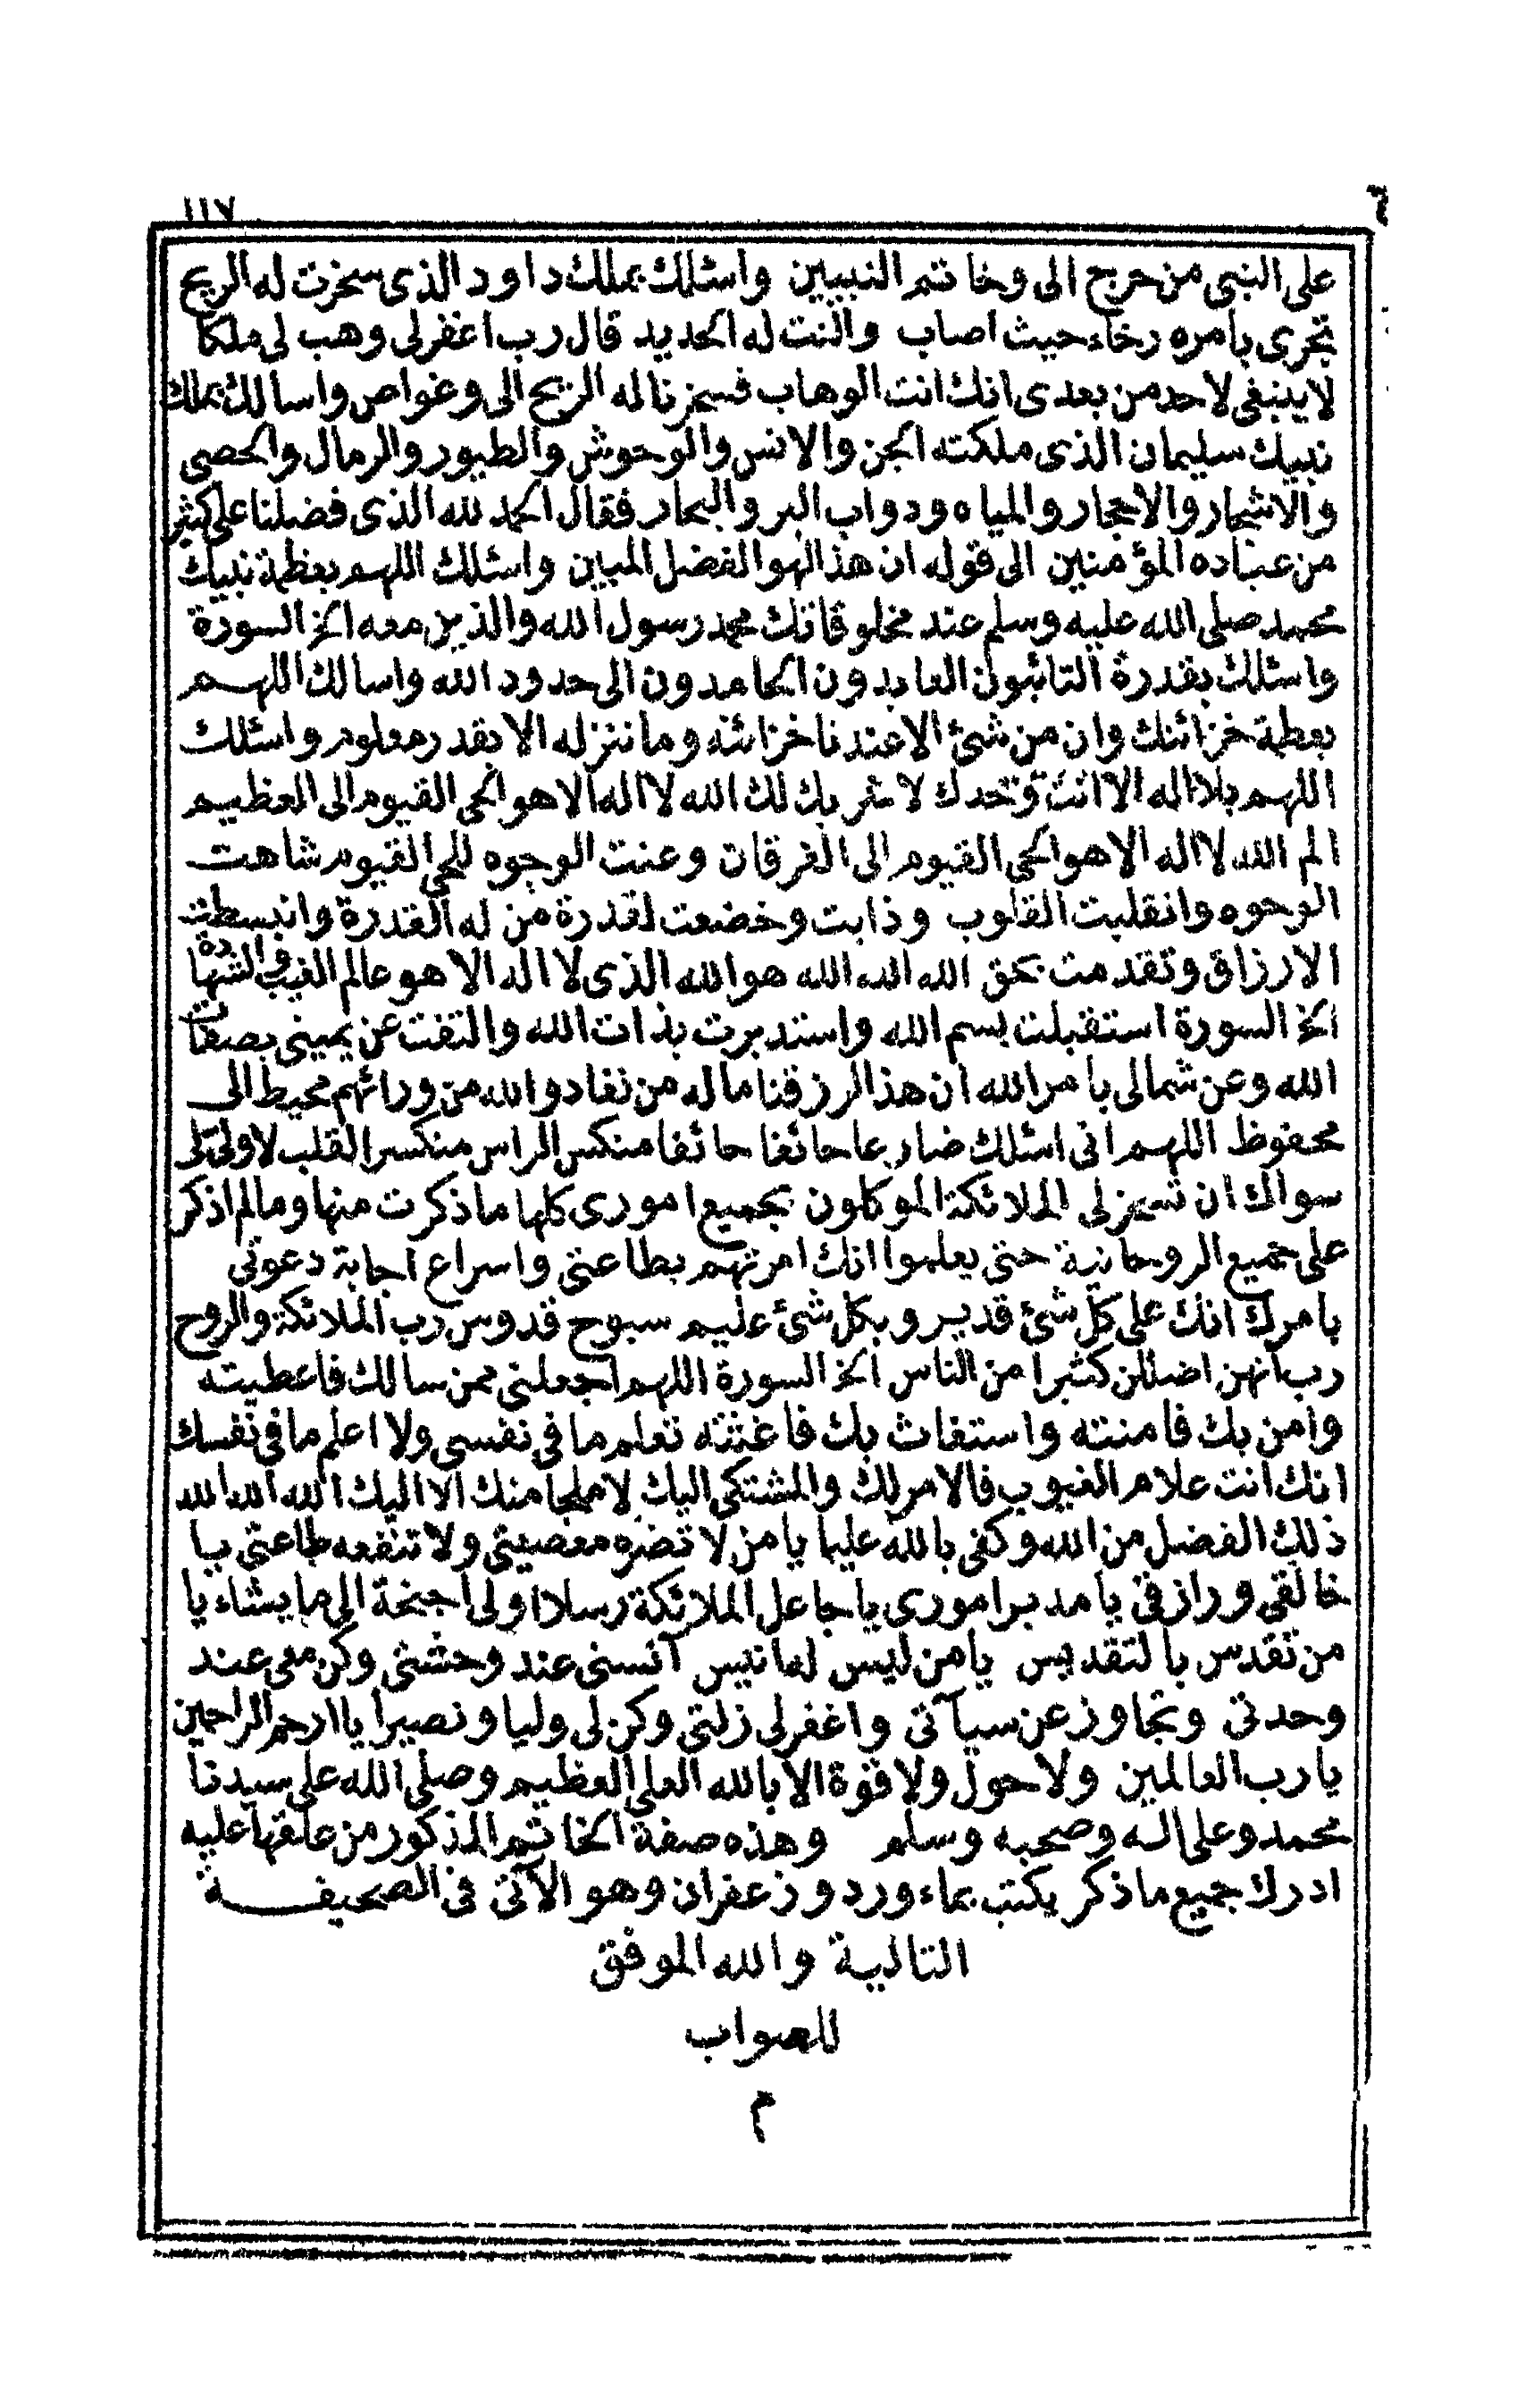 ١١٧
على النبى من حرج الى وخاتم النبيين واسئلك بملك داود الذى سخرت له الريح
تجرى بامره رخاء حيث اصاب والنت له الحديد قال رب اغفرلى وهب لى ملكا
لا ينبغى لاحد من بعدى انك انت الوهاب فسخرنا له الريح الى وغواص واسالك بملك
نبيك سليمان الذى ملكته الجن والانس والوحوش والطيور والرمال والحصى
والاشجار والاحجار والمياه ودواب البر والبحار فقال الحمد لله الذى فضلنا على كثير
من عباده المؤمنين الى قوله ان هذا لهو الفضل المبين واسئلك اللهم بعظمة نبيك
محمد صلى الله عليه وسلم عند مخلوقاتك محمد رسول الله والذين معه الخ السورة
واسئلك بقدرة التائبون العابدون الحامدون الى حدود الله واسالك اللهم
بعظمة خزائنك وان من شئ الا عندنا خزائنه وما ننزله الا بقدر معلوم واسئلك
اللهم بلا اله الا انت وحدك لا شريك لك الله لا اله الا هو الحى القيوم الى العظيم
الم الله لا اله الا هو الحى القيوم الى الفرقان وعنت الوجوه للحى القيوم شاهت
الوجوه وانقلبت القلوب وذابت وخضعت لقدرة من له القدرة وانبسطت
الارزاق وتقدمت بحق الله الله الله هو الله الذى لا اله الا هو عالم الغيب والشهادة
الخ السورة استقبلت بسم الله واستدبرت بذات الله والتفت عن يمينى بصفات
الله وعن شمالى بامر الله ان هذا لرزقنا ماله من نفاد والله من ورائهم محيط الى
محفوظ اللهم انى اسئلك ضارعا خائفا منكس الراس منكسر القلب لا ولى لى
سواك ان تسخر لى الملائكة الموكلون بجميع امورى كلها ما ذكرت منها وما لم اذكر
على جميع الروحانية حتى يعلموا انك امرتهم بطاعتى واسراع اجابة دعوتى
بامرك انك على كل شئ قدير وبكل شئ عليم سبوح قدوس رب الملائكة والروح
رب انهن اضللن كثيرا من الناس الخ السورة اللهم اجعلنى ممن سالك فاعطيته
وامن بك فامنته واستغاث بك فاغثته تعلم ما فى نفسى ولا اعلم ما فى نفسك
انك انت علام الغيوب فالامر لك والمشتكى اليك لا ملجا منك الا اليك الله الله الله
ذلك الفضل من الله وكفى بالله عليما يا من لا تضره معصيتى ولا تنفعه طاعتى يا
خالقى ورازقى يا مدبر امورى يا جاعل الملائكة رسلا اولى اجنحة الى ما يشاء يا
من تقدس بالتقديس يا من ليس له انيس آنسنى عند وحشتى وكن معى عند
وحدتى وتجاوز عن سيآتى واغفرلى زلتى وكن لى وليا ونصيرا يا ارحم الراحمين
يا رب العالمين ولا حول ولا قوة الا بالله العلى العظيم وصلى الله على سيدنا
محمد وعلى اله وصحبه وسلم وهذه صفة الخاتم المذكور من علقها عليه
ادرك جميع ما ذكر يكتب بماء ورد وزعفران وهو الآتى فى الصحيفة
التالية والله الموفق
للصواب
م